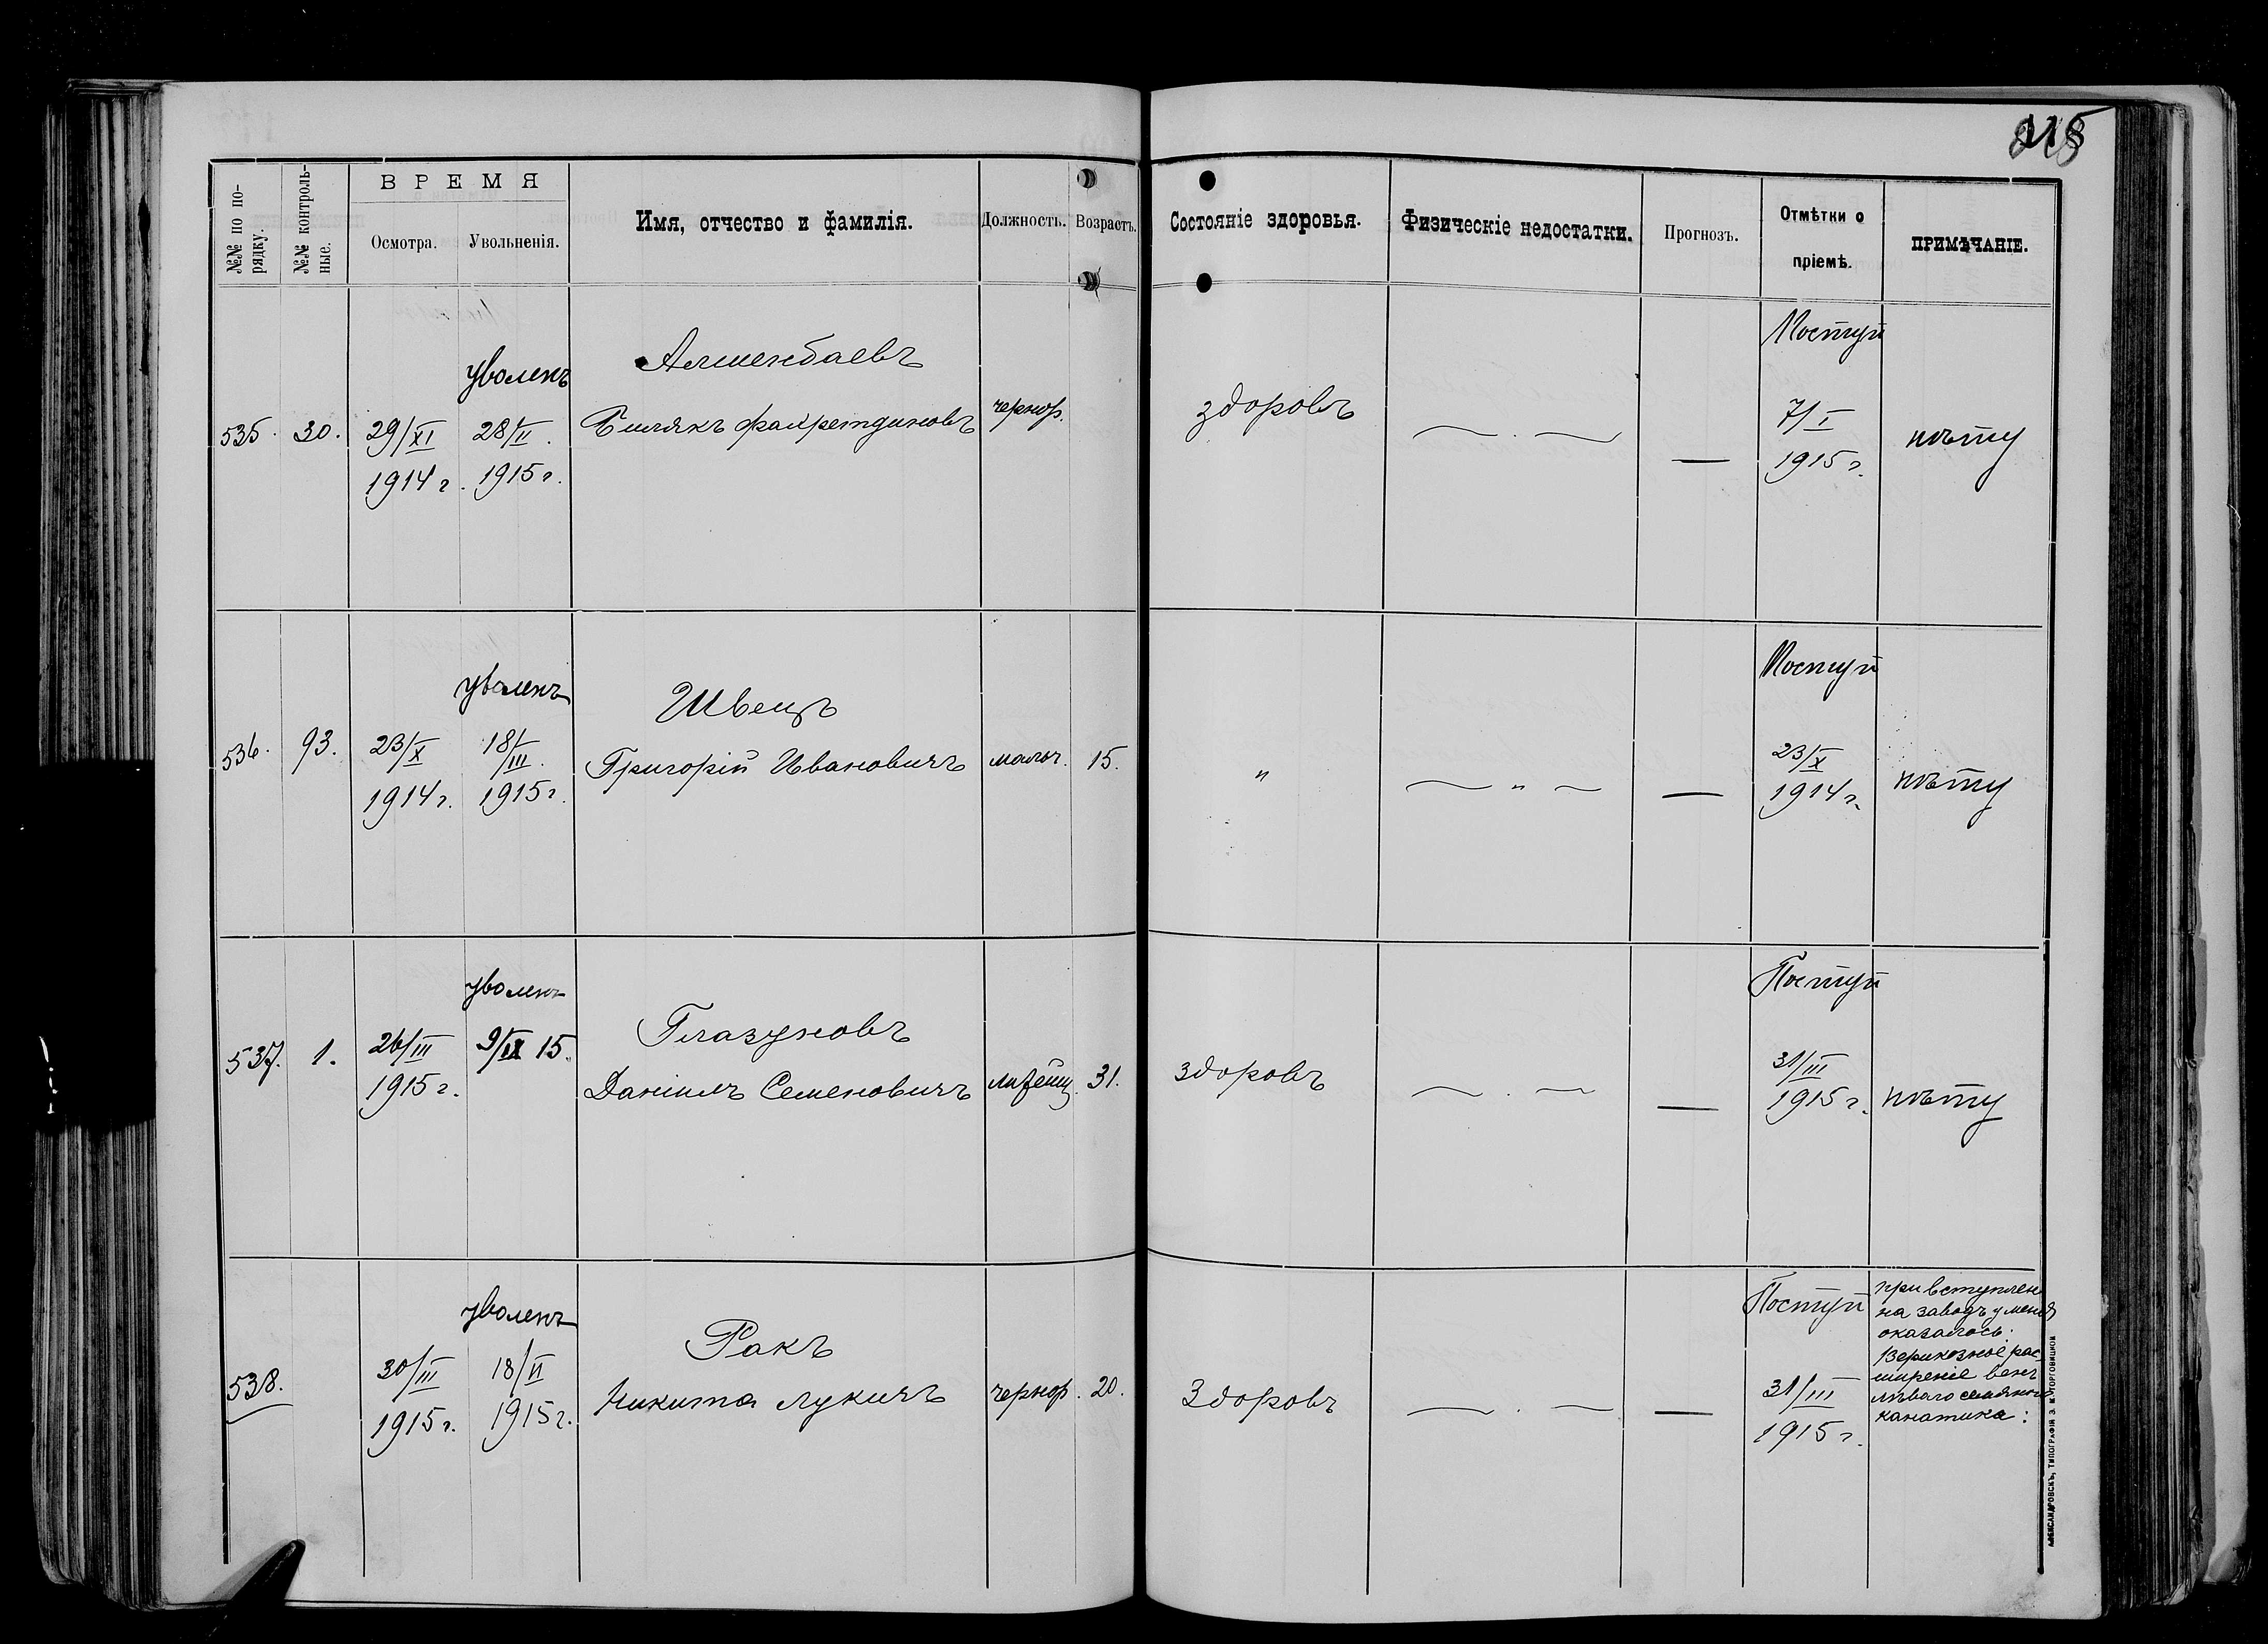 115
№№ по по-
рядку.
№№ контроль-
ные.
ВРЕМЯ
Осмотра.
Увольненія.
Имя, отчество и фамилія.
Должность.
Возрастъ.
Состояніе здоровья.
Физическіе недостатки.
Прогнозъ.
Отмѣтки о
пріемѣ.
ПРИМѢЧАНІЕ.
535.
30.
29/XI
1914 г.
уволенъ
28/II.
1915 г.
Алшенбаевъ
Билякъ Фахретдиновъ
чернор.
здоровъ
— . —
—
Поступ
7/I
1915 г.
нѣту
536.
93.
23/X
1914 г.
уволенъ
18/III.
1915 г.
Швецъ
Григорій Ивановичъ
мальч.
15.
"
— " —
—
Поступ
23/X
1914 г.
нѣту
537.
1.
26/III
1915 г.
уволенъ
9/IX 15.
Глазуновъ
Даніилъ Семеновичъ
литейщ.
31.
здоровъ
— . —
—
Поступ
31/III
1915 г.
нѣту
538.
30/III
1915 г.
уволенъ
18/VI
1915 г.
Ракъ
Никита Лукичъ
чернор.
20.
Здоровъ
— . —
—
Поступ
31/III
1915 г.
при вступлен
на заводъ у меня
оказалось:
Верикозное рас-
ширеніе венъ
лѣваго семяного
канатика:
АЛЕКСАНДРОВСКЪ, ТИПОГРАФІЯ Э. И. ТОРГОВИЦКОЙ